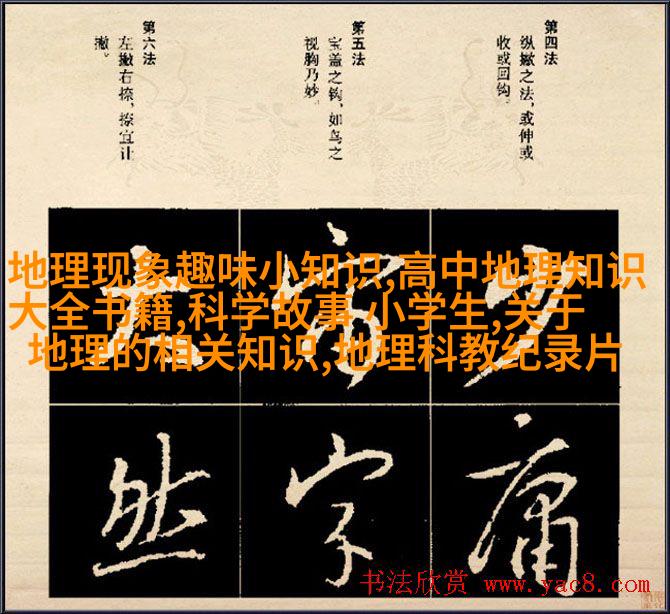 第四法
纵撇之法，或伸或
收或回钩。
第五法
宝盖之钩，如鸟之
视胸乃妙。
第六法
左撇右捺，捺宜让
撇。
地理现象趣味小知识,高中地理知识
大全书籍,科学故事 小学生,关于
地理的相关知识,地理科教纪录片
大
然
字
庸
书法欣赏 www.yac8.com